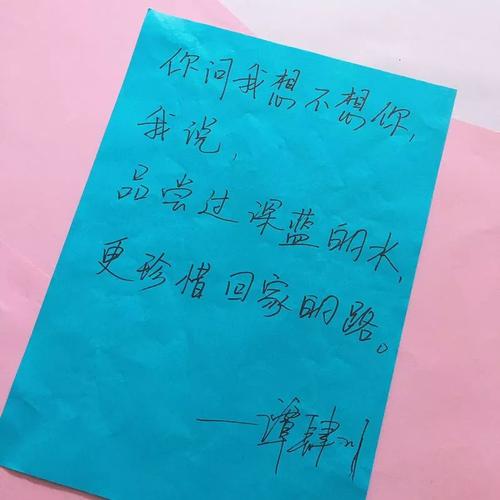 你问我想不想你,
我说,
品尝过深蓝的水,
更珍惜回家的路。
——谭肆川